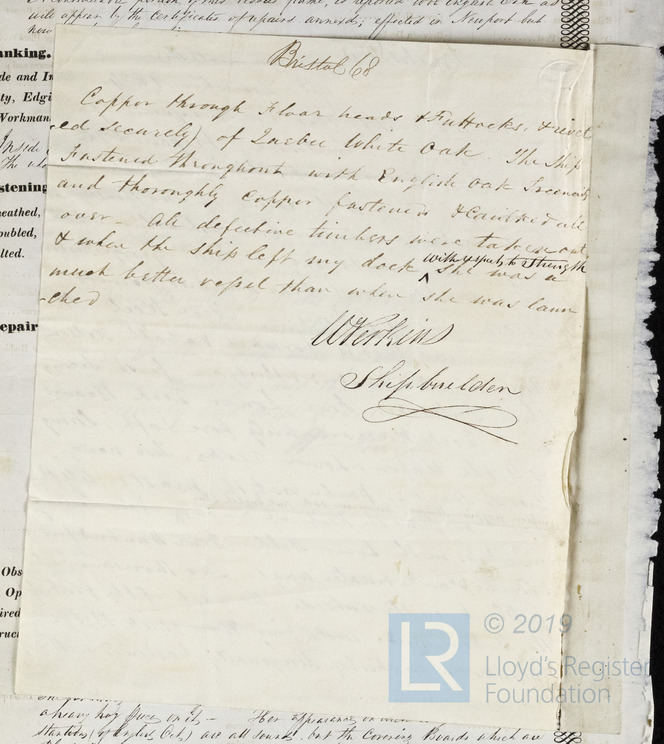 will appear by the Certificates of repairs annexed; effected in Newport but
Bristol 68
Copper through Floor heads & Futtocks, & rivet
ed securely) of Quebec White Oak. The Ship
Fastened throughout with English Oak Treenails
and thoroughly copper fastened & Caulked all
over - All defective timbers were taken out
& when the ship left my dock with respects to Strength She was a
much better vessel than when she was laun
-ched
WPerkins
Shipbuilder
anking.
de and In
ty, Edgi
Workman
stening
heathed,
oubled,
lted.
epair
Obs
Op
ired
ruct
© 2019
LR
Lloyd's Register
Foundation
Her appearance
are all sound, but the Covering Boards which are